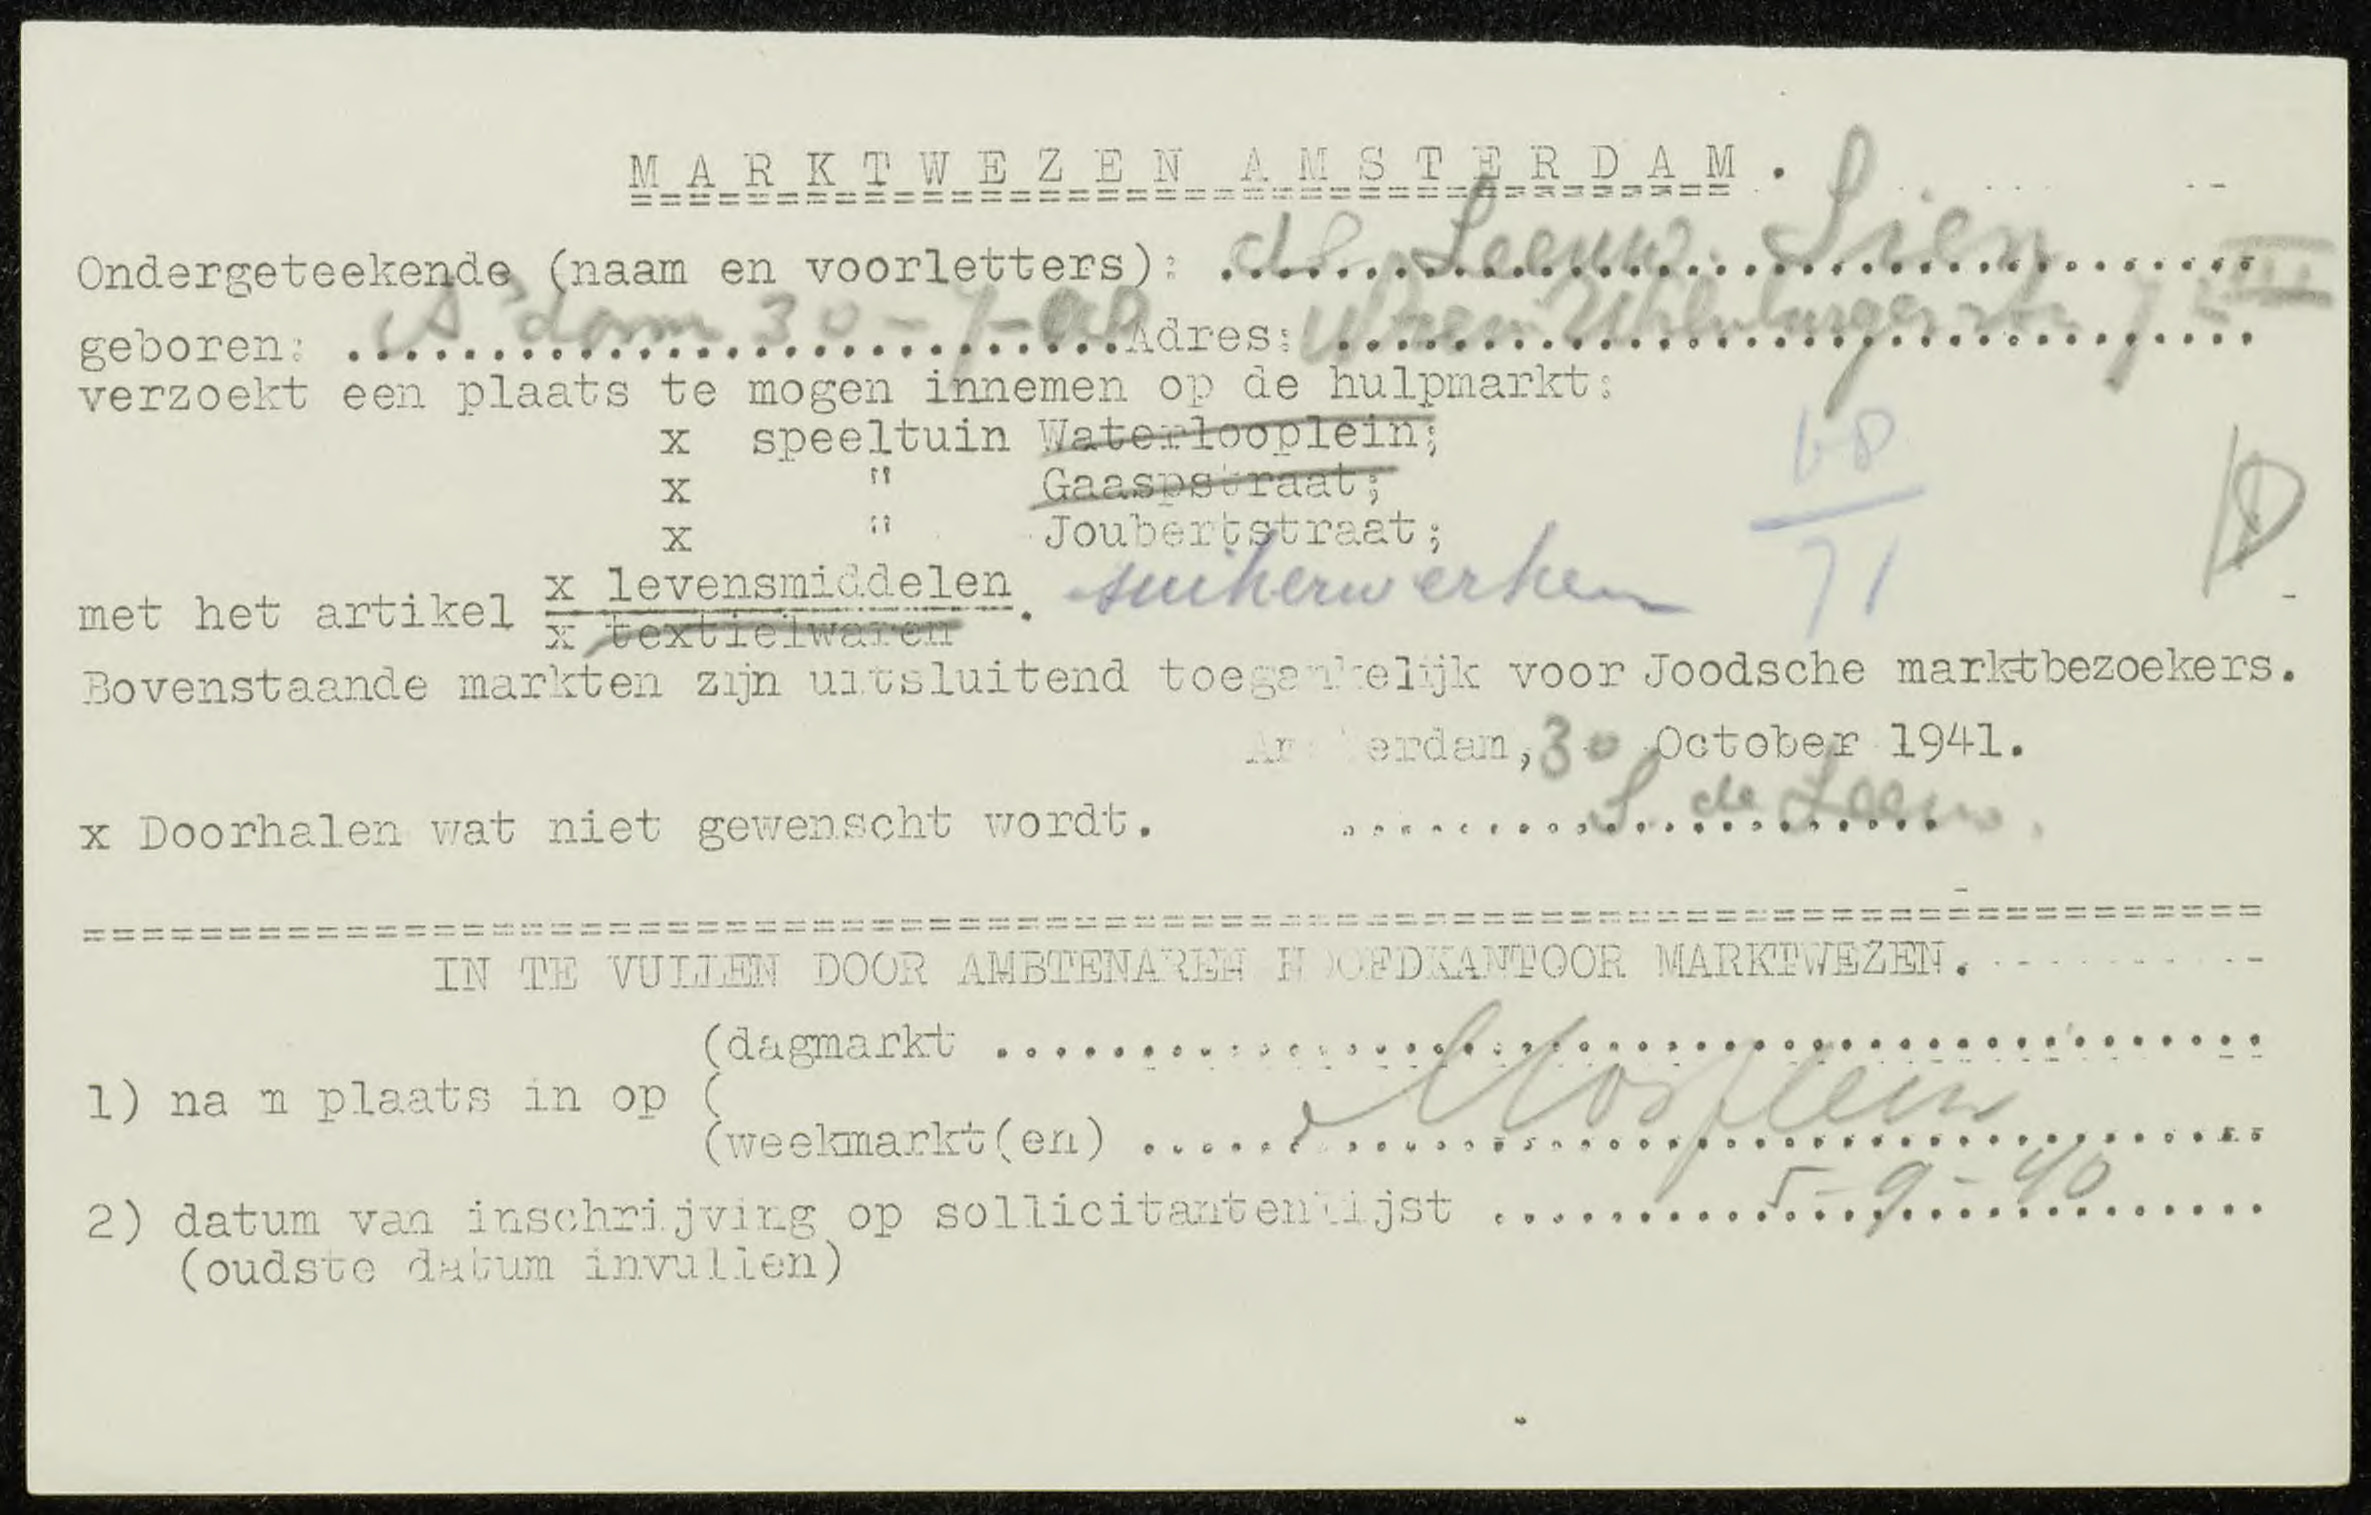 MARKTWEZEN AMSTERDAM.
Ondergeteekende (naam en voorletters): de Leeuw Sien
geboren: A'dam 30-7- Adres: Uilenburgerstr
verzoekt een plaats te mogen innemen op de hulpmarkt:
x speeltuin Waterlooplein;
x " Gaaspstraat;
x " Joubertstraat;
68
71
met het artikel x levensmiddelen. suikerwerken
x textielwaren
Bovenstaande markten zijn uitsluitend toegankelijk voor Joodsche marktbezoekers.
Amsterdam, 30 October 1941.
x Doorhalen wat niet gewenscht wordt. S. de Leeuw.
IN TE VULLEN DOOR AMBTENAREN HOOFDKANTOOR MARKTWEZEN.
(dagmarkt
1) nam plaats in op (
(weekmarkt(en) Mosplein
2) datum van inschrijving op sollicitantenlijst 5-9-40
(oudste datum invullen)